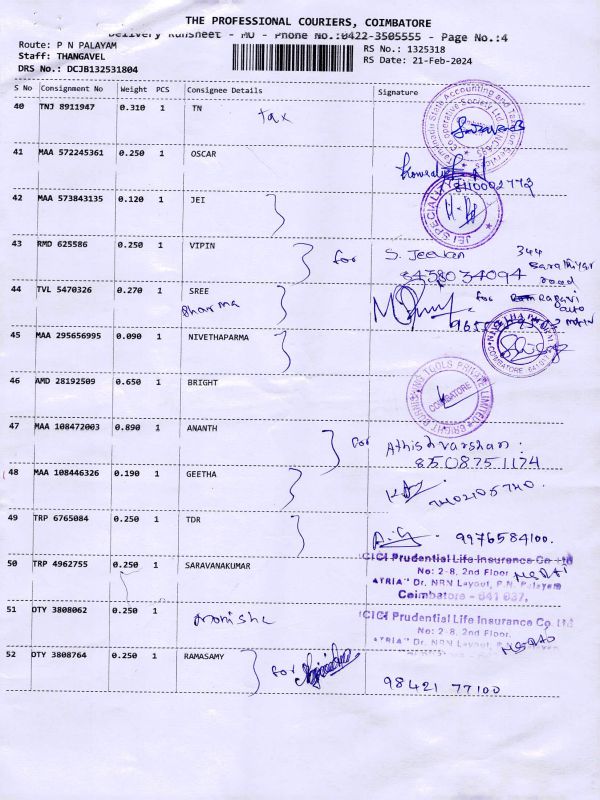 THE PROFESSIONAL COURIERS, COIMBATORE
Delivery Runsheet - MO - Phone No.:0422-3505555 - Page No.:4
Route: P N PALAYAM
Staff: THANGAVEL
DRS No.: DCJB132531804
RS No.: 1325318
RS Date: 21-Feb-2024
S No Consignment No Weight PCS Consignee Details Signature
40 TNJ 8911947 0.310 1 TN
tax
41 MAA 572245361 0.250 1 OSCAR
42 MAA 573843135 0.120 1 JEI
JEI SPECIALITY
43 RMD 625586 0.250 1 VIPIN
for S. Jeevan 344
road
44 TVL 5470326 0.270 1 SREE
pharma
for
45 MAA 295656995 0.090 1 NIVETHAPARMA
46 AMD 28192509 0.650 1 BRIGHT
TOOLS PRIVATE LIMITED BRIGHT
COIMBATORE
47 MAA 108472003 0.890 1 ANANTH
for Athishvarshan:
8508751174
48 MAA 108446326 0.190 1 GEETHA
49 TRP 6765084 0.250 1 TDR
9976584100.
50 TRP 4962755 0.250 1 SARAVANAKUMAR
ICICI Prudential Life Insurance Co Ltd
No: 2-8, 2nd Floor
"ATRIA" Dr. NRN Layout, P.N. Palayam
Coimbatore - 641 037.
51 DTY 3808062 0.250 1
monisha
ICICI Prudential Life Insurance Co. Ltd
No: 2-8, 2nd Floor,
"ATRIA" Dr. NRN Layout,
52 DTY 3808764 0.250 1 RAMASAMY
for
98421 77100